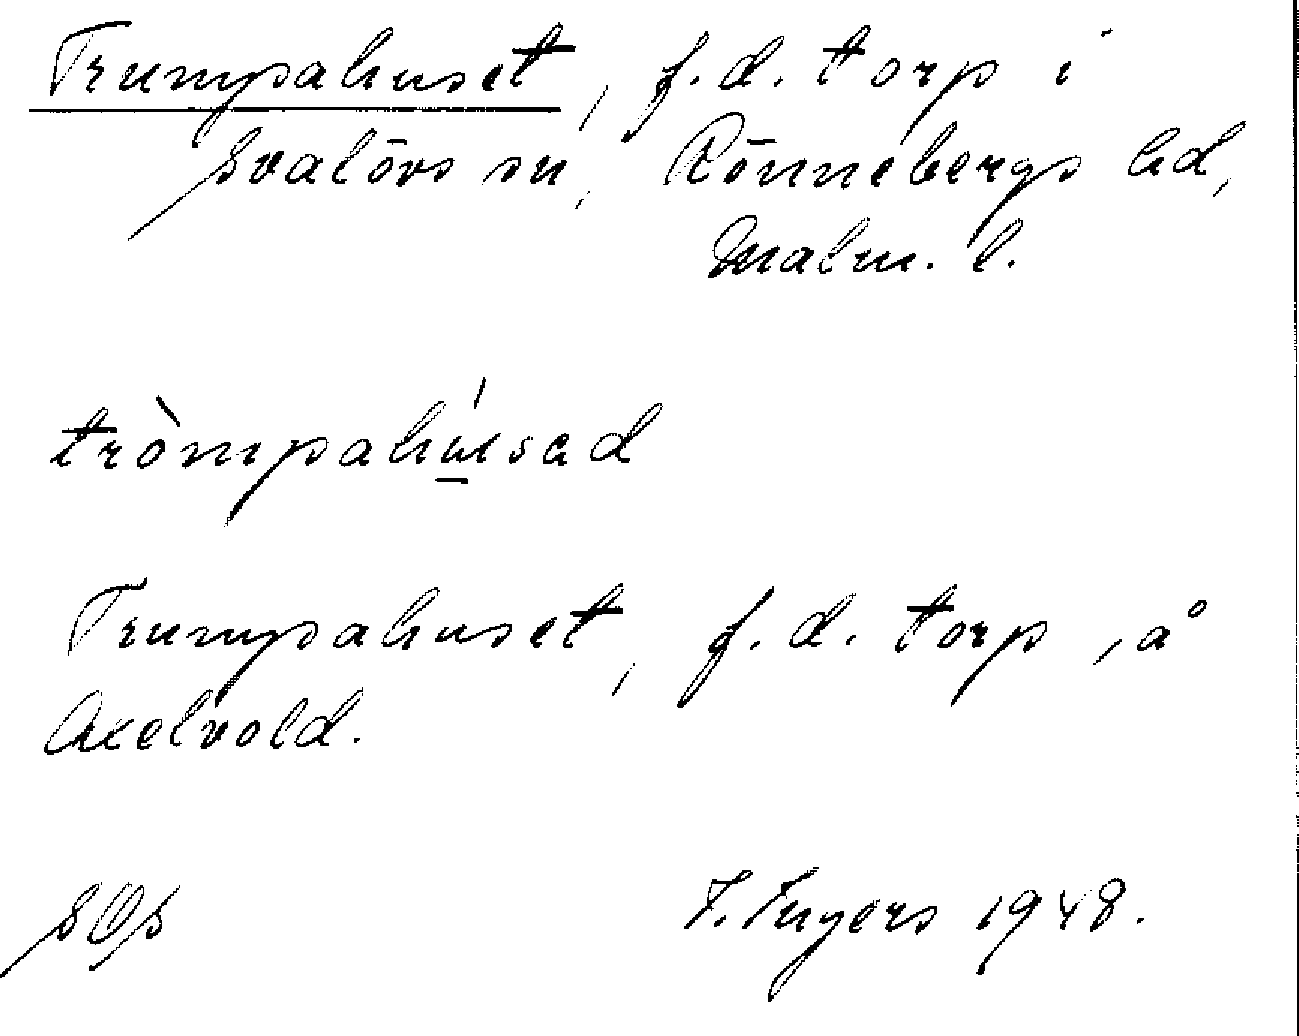 Trumpahuset, f.d. torp i
Svalövs sn, Rönnebergs hd,
Malm. l.
tròmpahúsad
Trumpahuset, f.d. torp, å
Axelvold.
SOS
I. Ingers 1948.